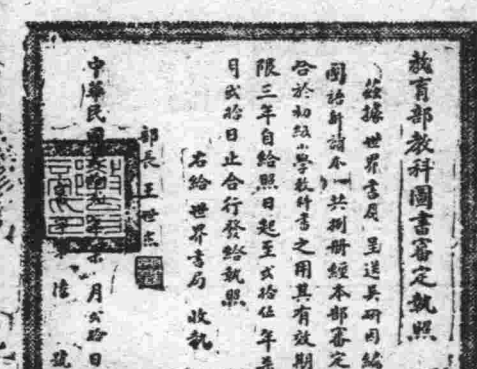 教育部教科圖書審定執照
茲據世界書局呈送吳研因編
國語新讀本一共捌冊經本部審定
合於初級小學教科書之用其有效期
限三年自給照日起至弍拾伍年
月弍拾日止合行發給執照
右給世界書局收執
部長王世杰
中華民國年月弍拾日
陸號